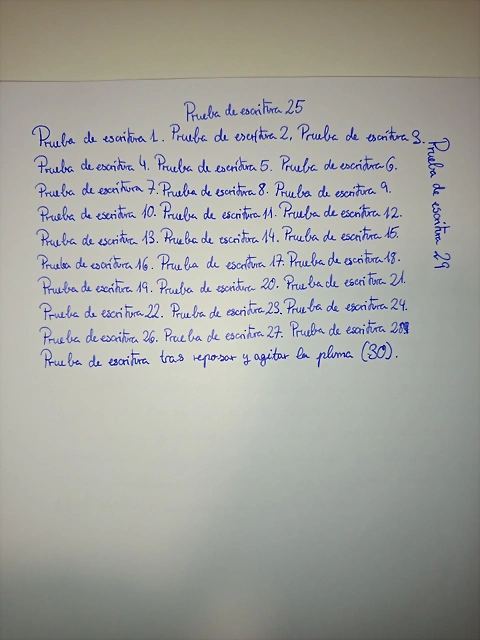 Prueba de escritura 25
Prueba de escritura 1. Prueba de escritura 2. Prueba de escritura 3.
Prueba de escritura 4. Prueba de escritura 5. Prueba de escritura 6.
Prueba de escritura 7. Prueba de escritura 8. Prueba de escritura 9.
Prueba de escritura 10. Prueba de escritura 11. Prueba de escritura 12.
Prueba de escritura 13. Prueba de escritura 14. Prueba de escritura 15.
Prueba de escritura 16. Prueba de escritura 17. Prueba de escritura 18.
Prueba de escritura 19. Prueba de escritura 20. Prueba de escritura 21.
Prueba de escritura 22. Prueba de escritura 23. Prueba de escritura 24.
Prueba de escritura 26. Prueba de escritura 27. Prueba de escritura 28
Prueba de escritura tras reposar y agitar la pluma (30).
Prueba de escritura 29